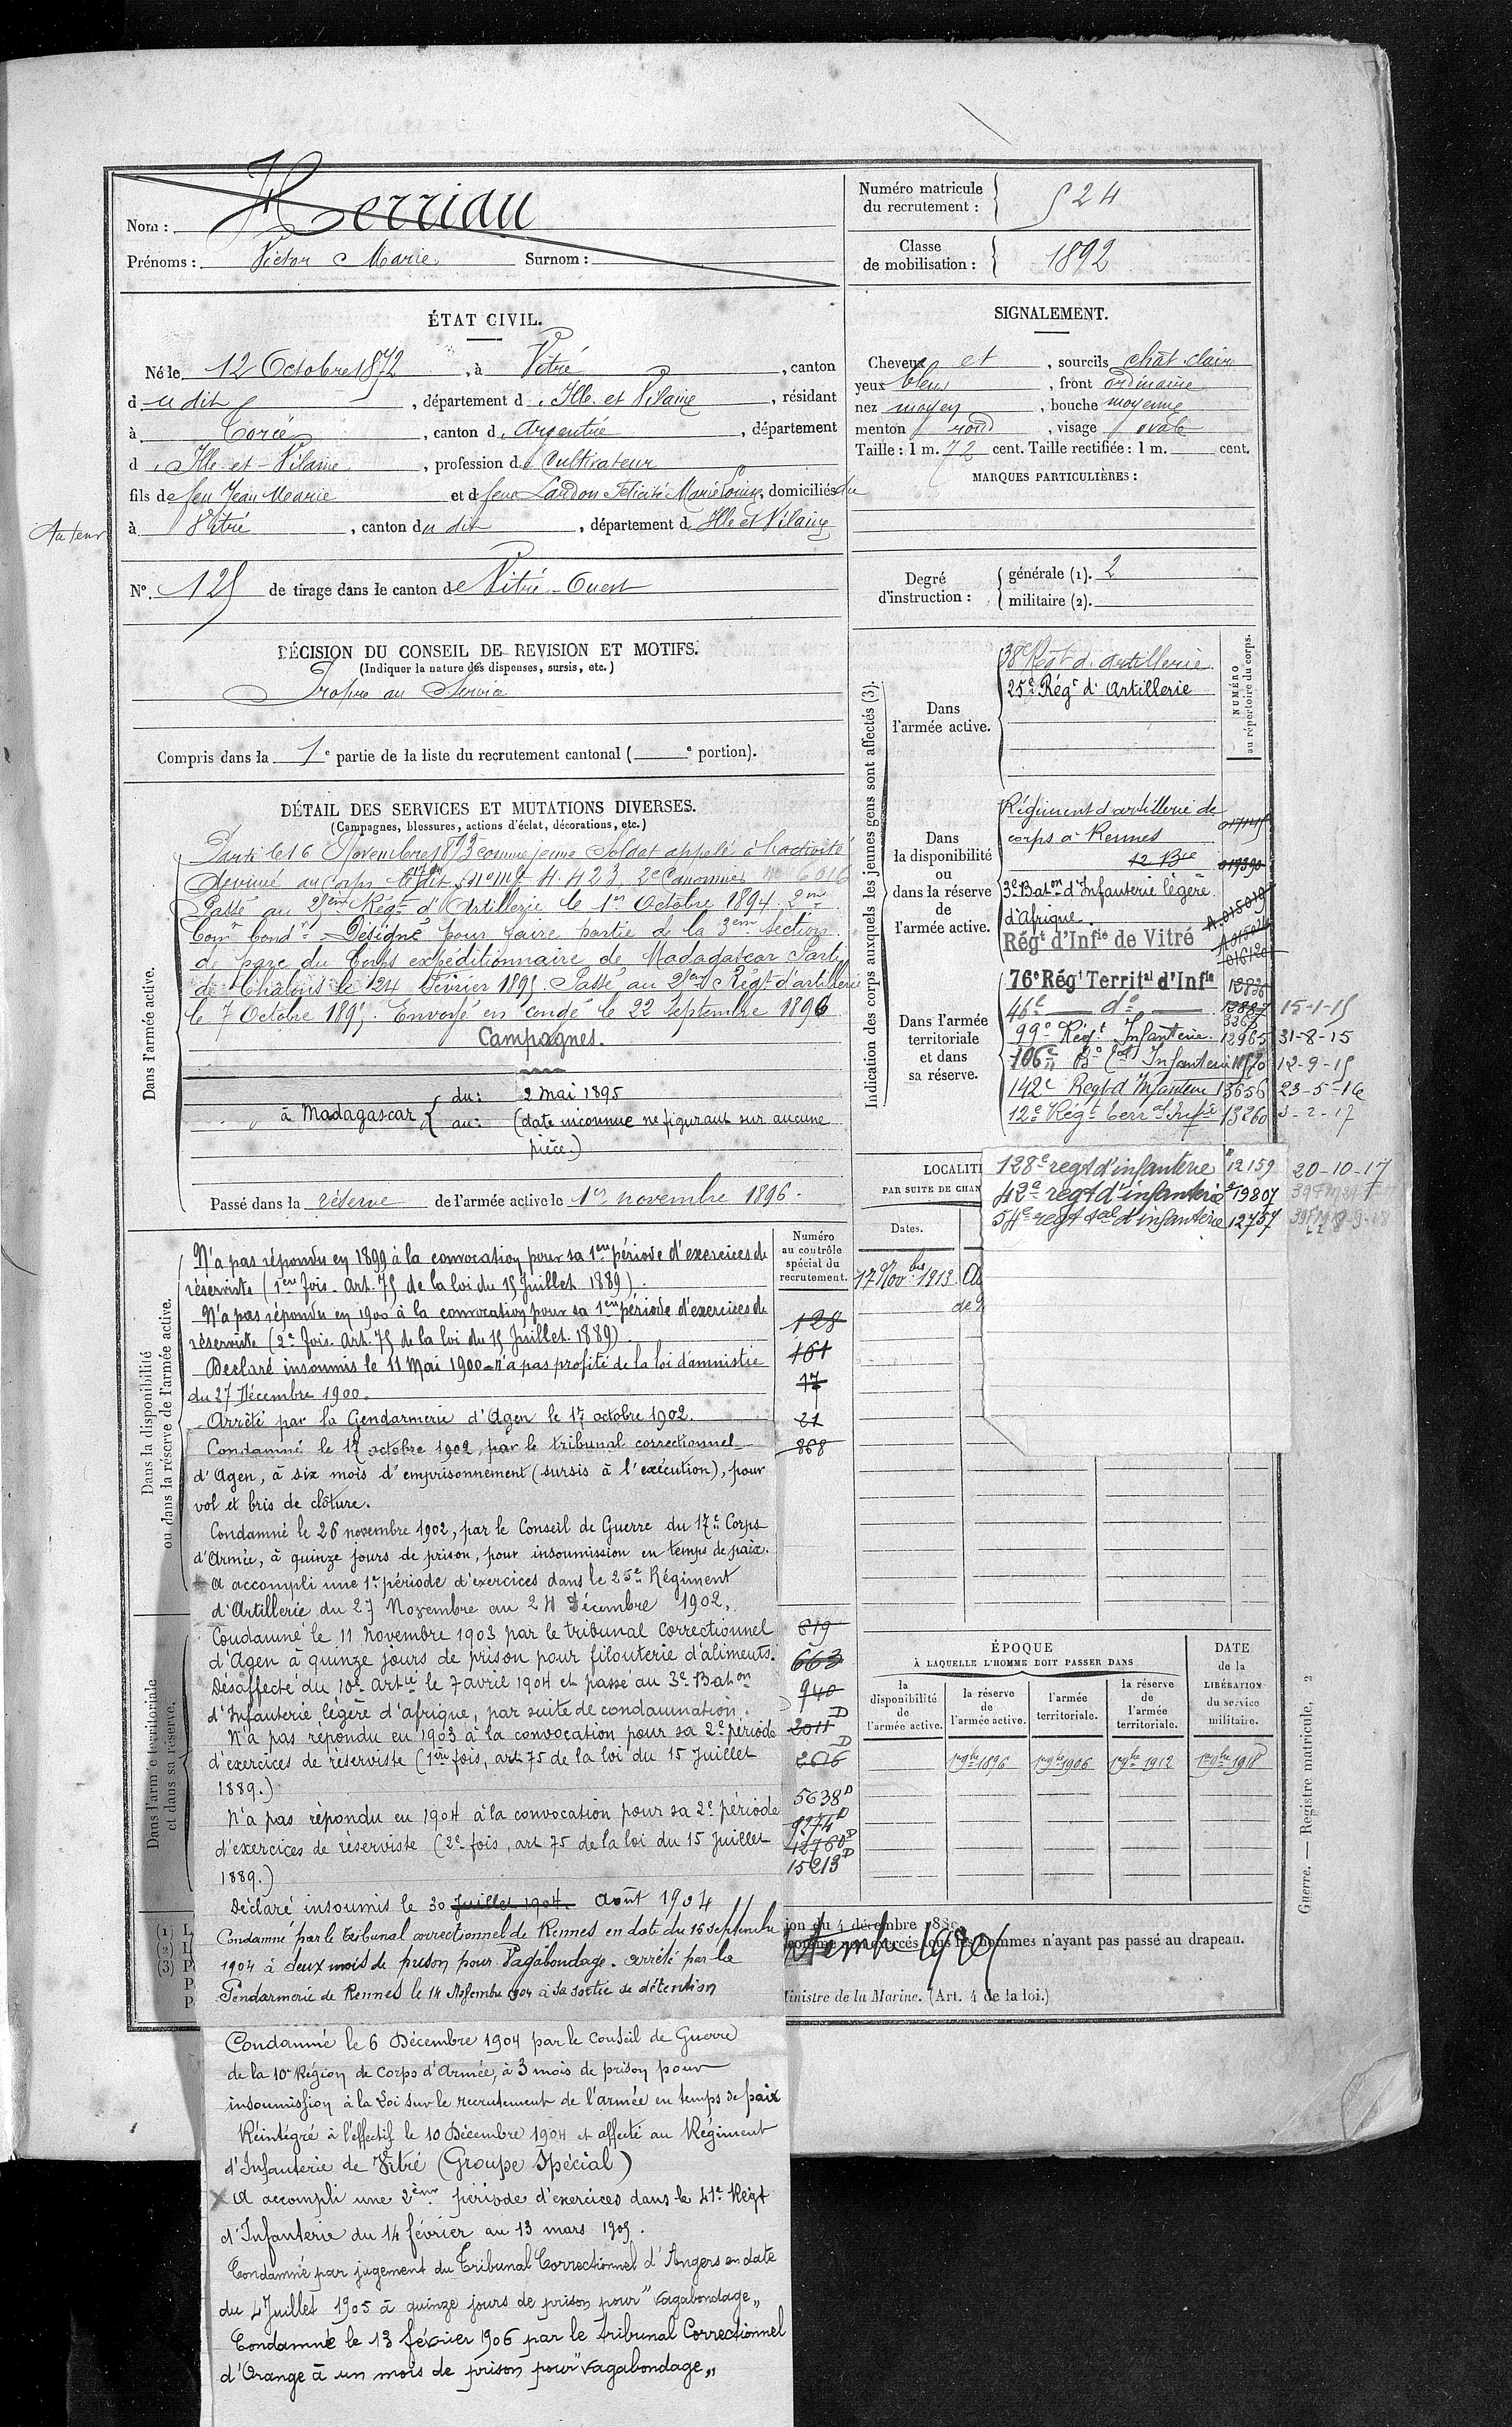 Nom : Herriau
Prénoms : Victor Marie Surnom :
Numéro matricule du recrutement : 524
Classe de mobilisation : 1892
ÉTAT CIVIL.
Né le 12 Octobre 1872, à Vitré, canton
dudit, département d'Ille et Vilaine, résidant
à Torcé, canton d'Argentré, département
d'Ille-et-Vilaine, profession de Cultivateur
fils de feu Jean Marie et de feue Lardon Félicité Marie Louise, domiciliés
à Vitré, canton dudit, département d'Ille et Vilaine
N° 125 de tirage dans le canton de Vitré-Ouest
DÉCISION DU CONSEIL DE REVISION ET MOTIFS.
(Indiquer la nature des dispenses, sursis, etc.)
Propre au Service
Compris dans la 1e partie de la liste du recrutement cantonal ( e portion).
DÉTAIL DES SERVICES ET MUTATIONS DIVERSES.
(Campagnes, blessures, actions d'éclat, décorations, etc.)
Dans l'armée active.
Parti le 16 Novembre 1893 comme jeune Soldat appelé à l'activité
Arrivé au Corps ledit, 2e Canonnier
Passé au 25ème Régt d'Artillerie le 1er Octobre 1894. 2me
Canr Condr. Désigné pour faire partie de la 3eme Section
de parc du Corps expéditionnaire de Madagascar Parti
de Châlons le 24 Février 1895. Passé au 25eme Régt d'artillerie
le 7 Octobre 1895. Envoyé en congé le 22 Septembre 1896
Campagnes.
à Madagascar { du : 2 Mai 1895
au : (date inconnue ne figurant sur aucune
pièce.)
Passé dans la réserve de l'armée active le 1er novembre 1896.
Dans la disponibilité
ou dans la réserve de l'armée active.
N'a pas répondu en 1899 à la convocation pour sa 1ère période d'exercices de
réserviste (1ère fois. Art. 75 de la loi du 15 Juillet 1889).
N'a pas répondu en 1900 à la convocation pour sa 1ère période d'exercices de
réserviste (2e fois. Art. 75 de la loi du 15 Juillet. 1889)
Déclaré insoumis le 11 Mai 1900 - n'a pas profité de la loi d'amnistie
du 27 Décembre 1900.
Arrêté par la Gendarmerie d'Agen le 17 octobre 1902.
Condamné le 17 octobre 1902, par le tribunal correctionnel
d'Agen, à six mois d'emprisonnement (sursis à l'exécution), pour
vol et bris de clôture.
Condamné le 26 novembre 1902, par le Conseil de Guerre du 17e Corps
d'Armée, à quinze jours de prison, pour insoumission en temps de paix.
A accompli une 1e période d'exercices dans le 25e Régiment
d'Artillerie du 27 Novembre au 24 Décembre 1902,
Dans l'armée territoriale
et dans sa réserve.
Condamné le 11 Novembre 1903 par le tribunal correctionnel
d'Agen à quinze jours de prison pour filouterie d'aliments.
Désaffecté du 10e Artie le 7 avril 1904 et passé au 3e Baton
d'Infanterie légère d'afrique, par suite de condamnation.
N'a pas répondu en 1903 à la convocation pour sa 2e période
d'exercices de réserviste (1ère fois, art 75 de la loi du 15 Juillet
1889.)
N'a pas répondu en 1904 à la convocation pour sa 2e période
d'exercices de réserviste (2e fois, art 75 de la loi du 15 Juillet
1889.)
Déclaré insoumis le 30 Juillet 1904. Août 1904
Condamné par le Tribunal correctionnel de Rennes en date du 16 septembre
1904 à deux mois de prison pour Vagabondage. arrêté par la
Gendarmerie de Rennes le 14 Novembre 1904 à sa sortie de détention
Condamné le 6 Décembre 1904 par le Conseil de Guerre
de la 10e Région de Corps d'Armée, à 3 mois de prison pour
insoumission à la Loi sur le recrutement de l'armée en temps de paix
Réintégré à l'effectif le 10 Décembre 1904 et affecté au Régiment
d'Infanterie de Vitré (Groupe Spécial)
X A accompli une 2ème période d'exercices dans le 41e Régt
d'Infanterie du 14 février au 13 mars 1905.
Condamné par jugement du Tribunal Correctionnel d'Angers en date
du 4 Juillet 1905 à quinze jours de prison pour "Vagabondage"
Condamné le 13 février 1906 par le Tribunal Correctionnel
d'Orange à un mois de prison pour "Vagabondage"
Numéro
au contrôle
spécial du
recrutement.
128
161
17
21
868
619
663
940
2011 D
2616 D
5638 D
9274 D
12760 D
15213 D
SIGNALEMENT.
Cheveux et, sourcils chât. clair
yeux bleus, front ordinaire
nez moyen, bouche moyenne
menton rond, visage ovale
Taille : 1 m. 72 cent. Taille rectifiée : 1 m. cent.
MARQUES PARTICULIÈRES :
Degré d'instruction : { générale (1). 2
militaire (2).
Indication des corps auxquels les jeunes gens sont affectés (3).
NUMÉRO
au répertoire du corps.
Dans
l'armée active.
38e Régt d'artillerie
25e Régt d'Artillerie
Dans
la disponibilité
ou
dans la réserve
de
l'armée active.
Régiment d'artillerie de
corps à Rennes
12 Bie
3e Baton d'Infanterie légère
d'Afrique
Régt d'Infie de Vitré
Dans l'armée
territoriale
et dans
sa réserve.
76e Régt Territal d'Infie
46e do 15-1-15
99e Régt Infanterie 12965 31-8-15
106e Infanterie 12-9-15
142e Regt d'Infanterie 13656 23-5-16
12e Régt Terr d'Infie 13260 3-2-17
128e regt d'infanterie 12159 20-10-17
42e regt d'infanterie 19807
54e regt tal d'infanterie 12757
LOCALIT
PAR SUITE DE CHAN
Dates.
17 Novbre 1913
ÉPOQUE
À LAQUELLE L'HOMME DOIT PASSER DANS
la
disponibilité
de
l'armée active.
la réserve
de
l'armée active.
l'armée
territoriale.
la réserve
de
l'armée
territoriale.
DATE
de la
LIBÉRATION
du service
militaire.
1er 9bre 1896
1er 9bre 1906
1er 9bre 1912
1er 9bre 1918
ion du 4 décembre 188
tous les hommes n'ayant pas passé au drapeau.
Ministre de la Marine. (Art. 4 de la loi.)
Guerre. — Registre matricule. 2